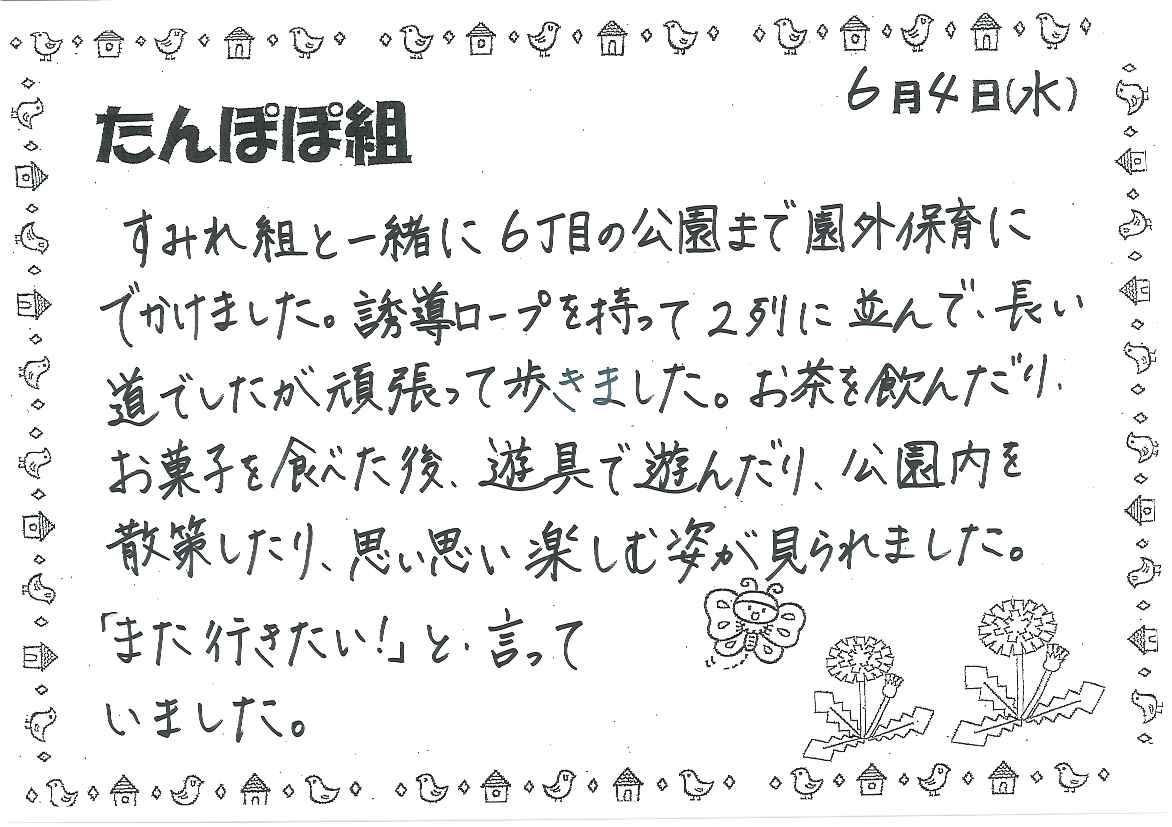 6月4日(水)
たんぽぽ組
すみれ組と一緒に6丁目の公園まで園外保育に
でかけました。誘導ロープを持って2列に並んで、長い
道でしたが頑張って歩きました。お茶を飲んだり、
お菓子を食べた後、遊具で遊んだり、公園内を
散策したり、思い思い楽しむ姿が見られました。
「また行きたい!」と、言って
いました。